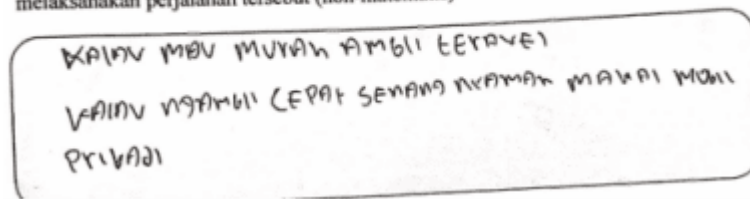 melaksanakan perjalanan tersebut (non matematis)
KALAU MAU MURAH AMBIL TERAVEL
KALAU NGAMBIL CEPAT SENANG NYAMAN MAKAI MOBIL
PRIBADI